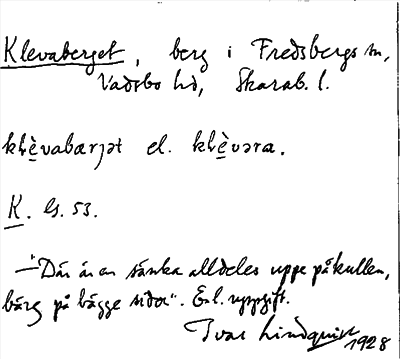 Klevaberget, berg i Fredsbergs sn,
Vadsbo hd, Skarab. l.
klèvabærjət el. klèvəra.
K. G. 53.
"Där är en sänka alldeles uppe på kullen,
bärg på bägge sidor". Enl. uppgift.
Ivar Lindquist 1928